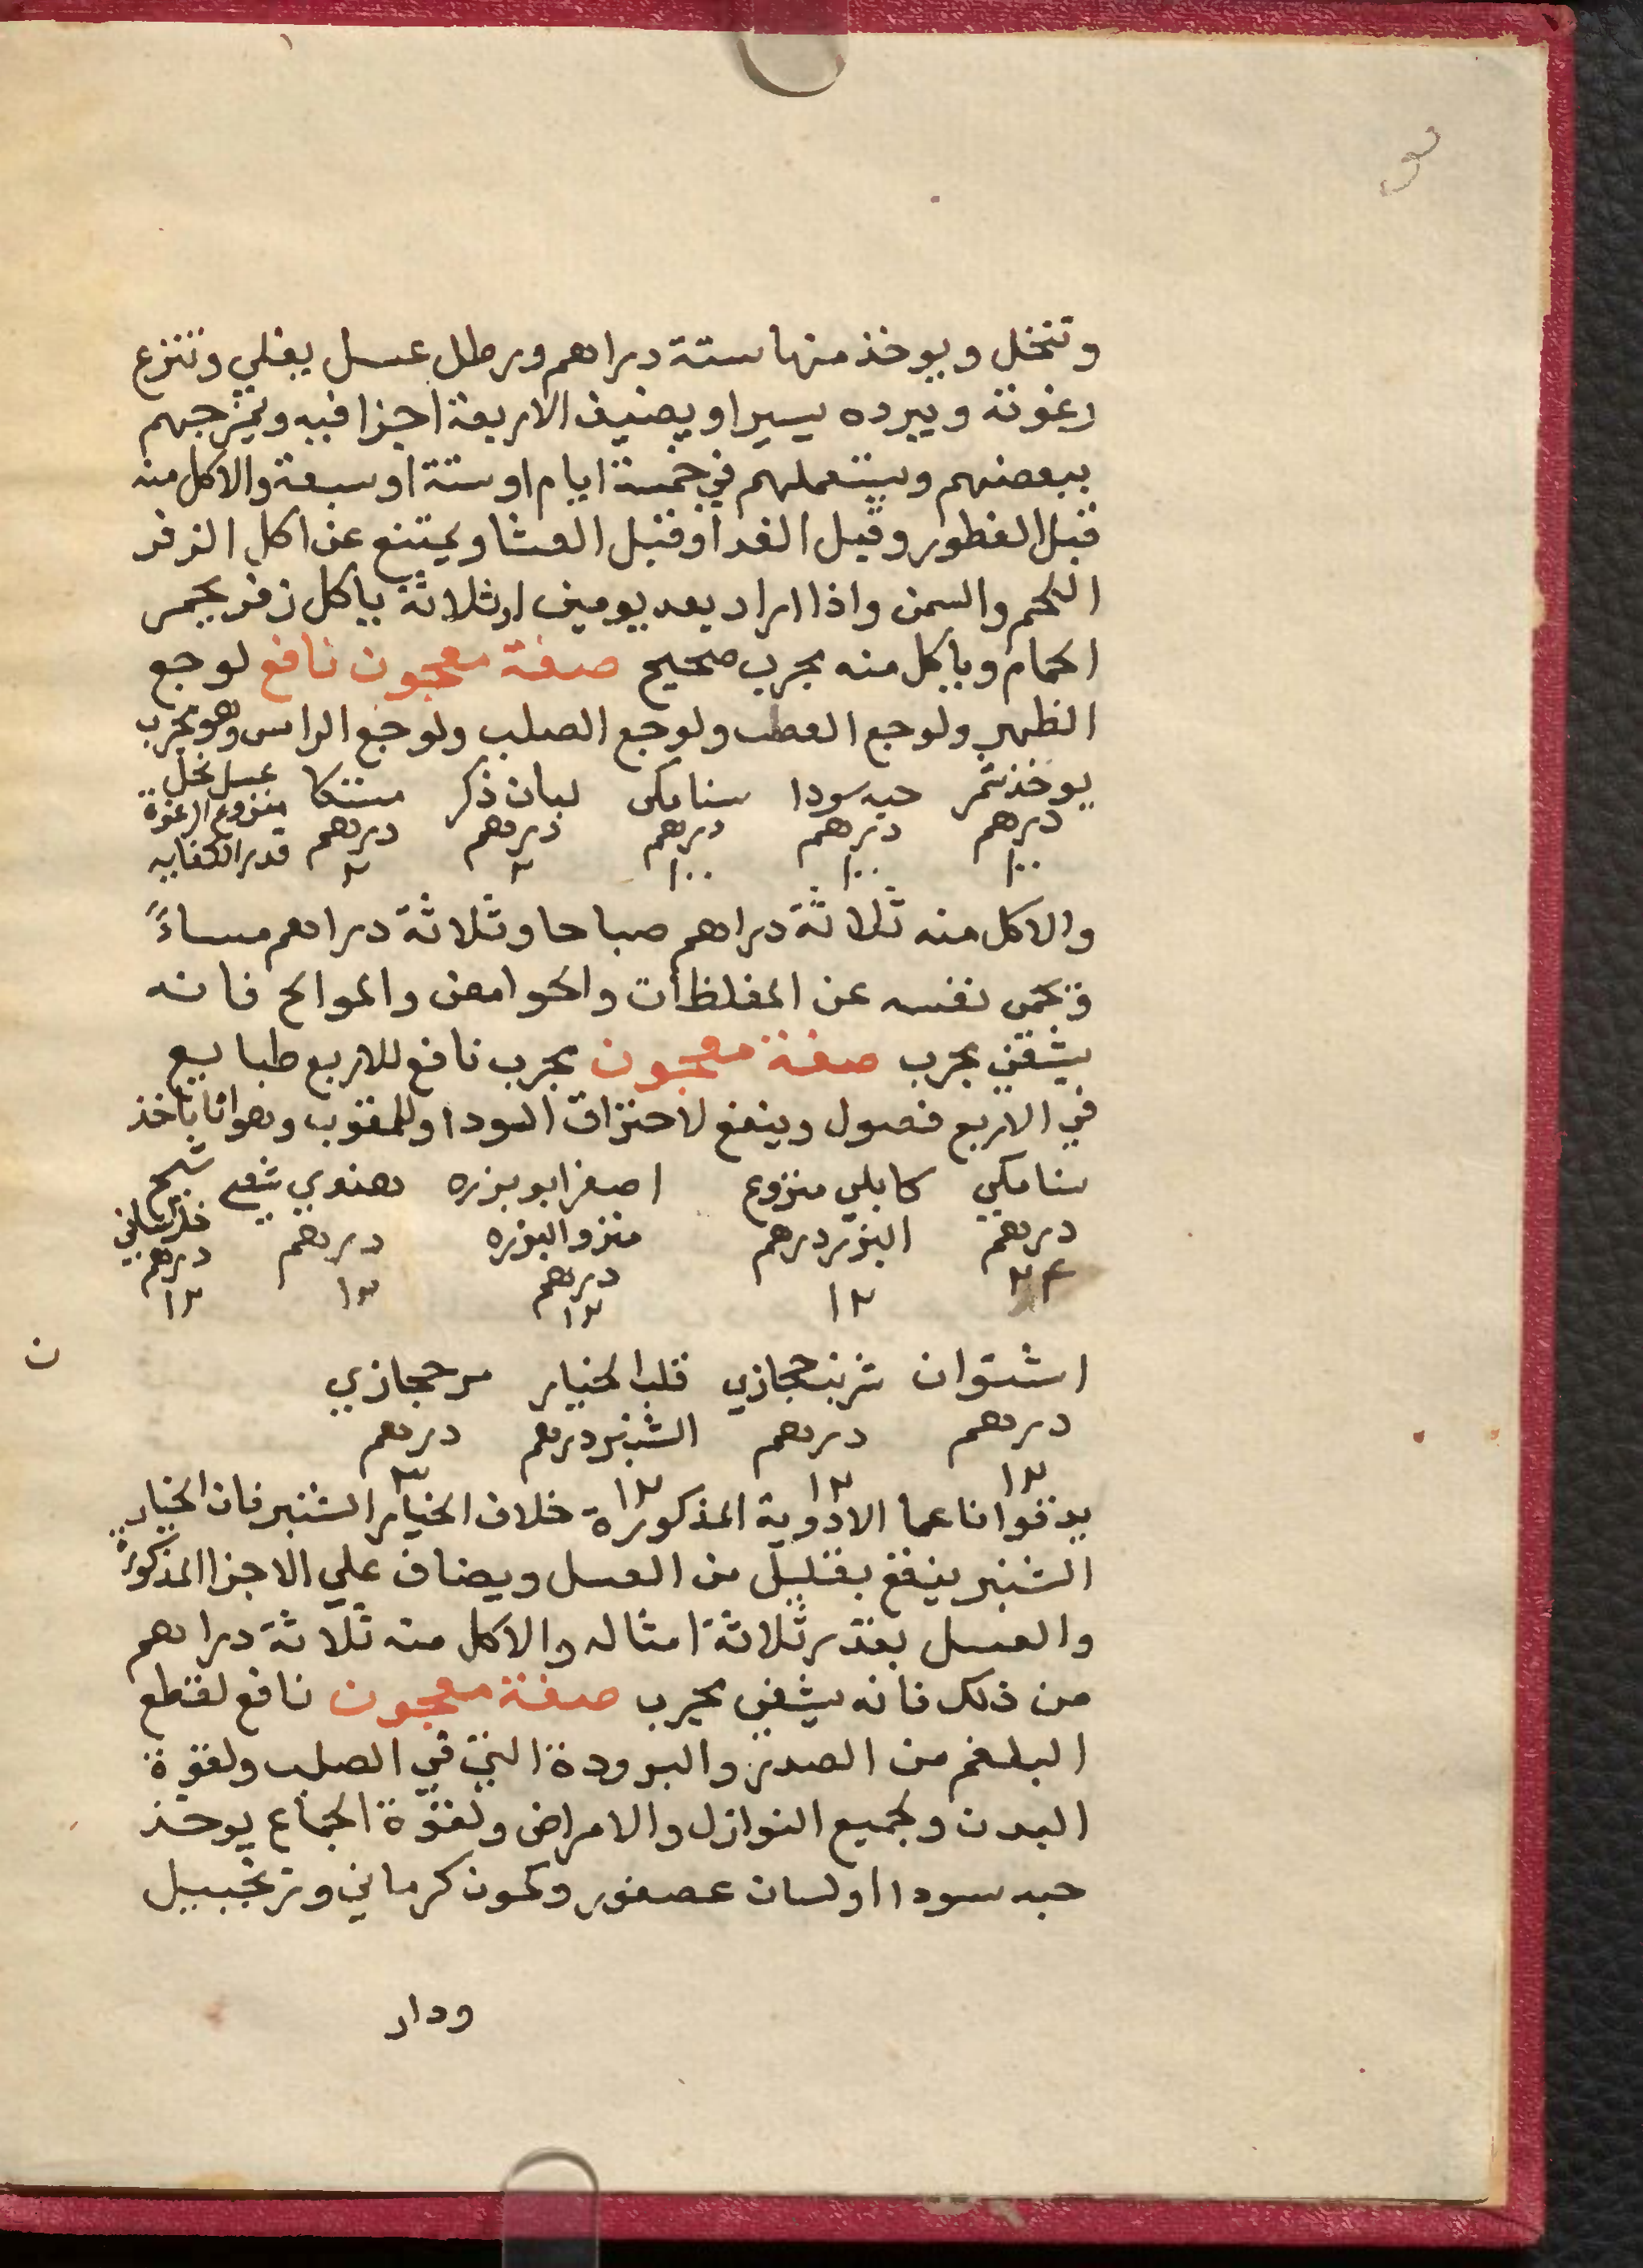 وتنخل ويوخذ منها ستة دراهم ورطل عسل يغلي وتنزع
رغوته ويبرده يسيرا ويضيف الاربعة اجزا فيه ويمزجهم
ببعضهم ويستعملهم في خمسة ايام او ستة او سبعة والاكل منه
قبل الفطور وقبل الغدا وقبل العشا ويمتنع عن اكل الزفر
اللحم والسمن واذا اراد بعد يومين او ثلاثة ياكل زفر يحمر
الحمام وياكل منه مجرب صحيح صفة معجون نافع لوجع
الظهر ولوجع العصب ولوجع الصلب ولوجع الراس وهو مجرب
يوخذ شمر حبه سودا سنامكى لبان ذكر مستكا عسل نحل
درهم درهم درهم درهم درهم منزوع الرغوة
١٠٠ ١٠٠ ١٠٠ ٢ ٢ قدر الكفايه
والاكل منه ثلاثة دراهم صباحا وثلاثة دراهم مساءً
وتحمى نفسه عن المغلظات والحوامض والموالح فانه
يشفي مجرب صفة معجون مجرب نافع للاربع طبايع
في الاربع فصول وينفع لاحتراق السودا وللمغوب وهو انا ناخذ
سنامكي كابلي منزوع اصفر ابو بزره هندي شعير شيح
درهم البزر درهم منزو البزره درهم خراساني
٢٤ ١٢ درهم ١٢ درهم
١٢ ١٢
اشتوان شربت حجازي قلب الخيار مر حجازي
درهم درهم الشنبر درهم درهم
١٢ ١٢ ١٢ ٣
يدقوا ناعما الادوية المذكورة خلاف الخيار الشنبر فان الخيار
الشنبر ينقع بقليل من العسل ويضاف علي الاجزا المذكورة
والعسل بقدر ثلاثة امثاله والاكل منه ثلاثة دراهم
من ذلك فانه يشفى مجرب صفة معجون نافع لقطع
البلغم من الصدر والبرودة التي في الصلب ولقوة
البدن ولجميع النوازل والامراض ولقوة الجماع يوخذ
حبه سودا اولسان عصفور وكمون كرماني وزنجبيل
ودار